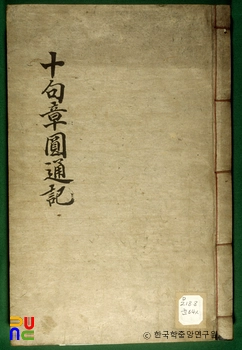 十句章圓通記
ⓒ 한국학중앙연구원